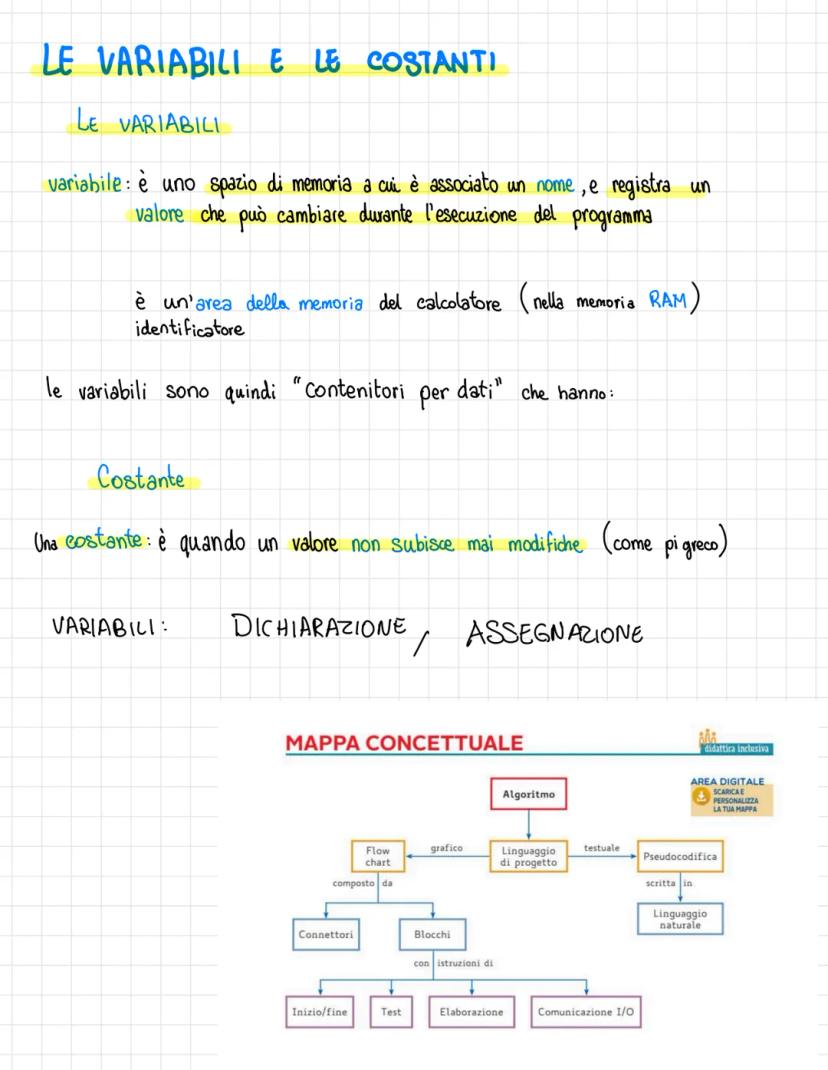 LE VARIABILI E LE COSTANTI
LE VARIABILI
variabile: è uno spazio di memoria a cui è associato un nome, e registra un
valore che può cambiare durante l'esecuzione del programma
è un'area della memoria del calcolatore (nella memoria RAM)
identificatore
le variabili sono quindi "contenitori per dati" che hanno:
Costante
Una costante: è quando un valore non subisce mai modifiche (come pi greco)
VARIABILI: DICHIARAZIONE / ASSEGNAZIONE
MAPPA CONCETTUALE
didattica inclusiva
AREA DIGITALE
SCARICA E
PERSONALIZZA
LA TUA MAPPA
Algoritmo
Flow
chart
grafico
Linguaggio
di progetto
testuale
Pseudocodifica
composto da
scritta in
Connettori
Blocchi
Linguaggio
naturale
con istruzioni di
Inizio/fine
Test
Elaborazione
Comunicazione I/O